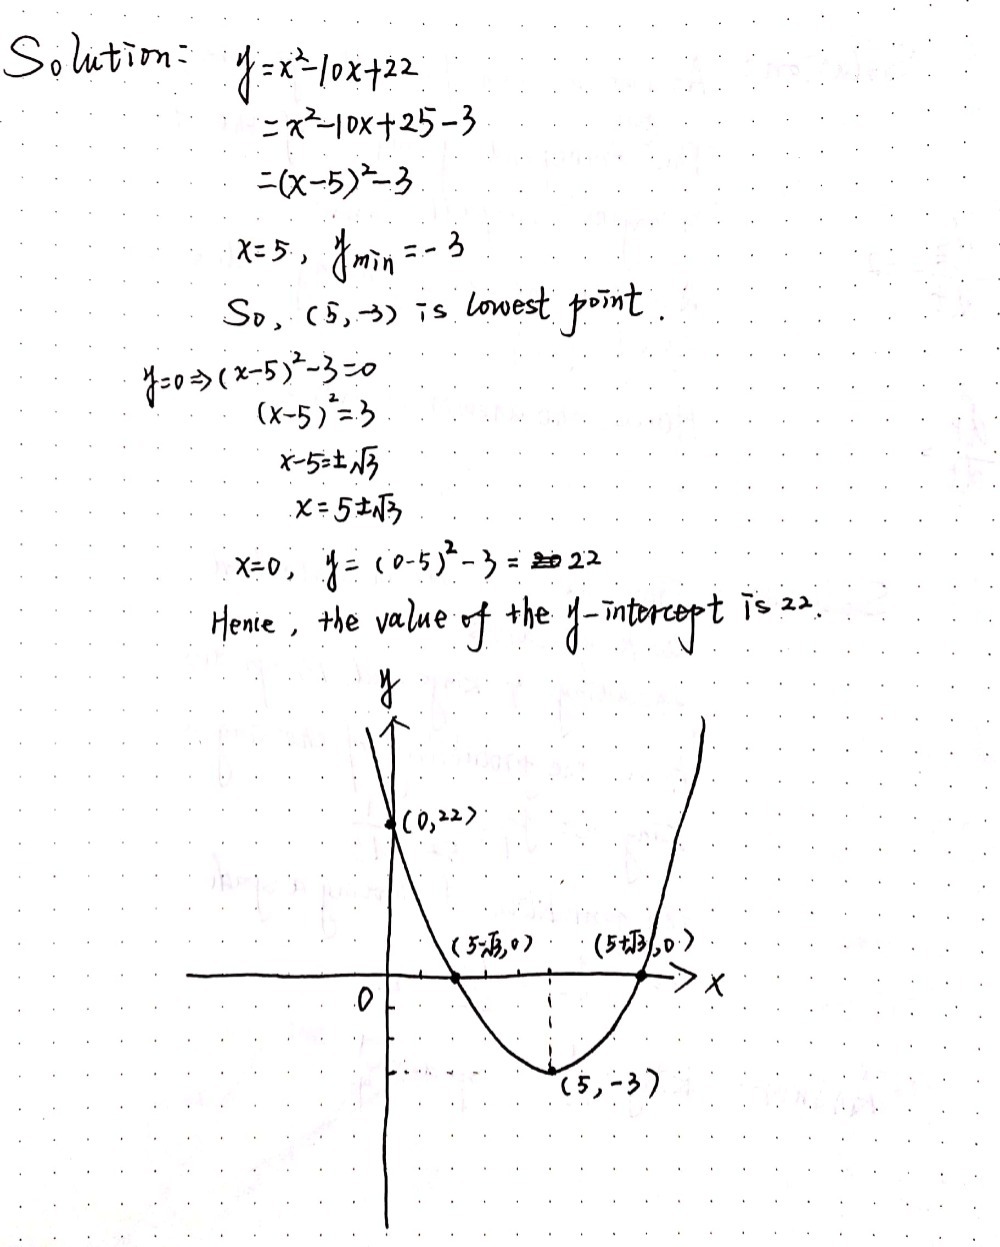 Solution: y=x²-10x+22
=x²-10x+25-3
=(x-5)²-3
x=5, y min=-3
So, (5,-3) is lowest point.
y=0⇒(x-5)²-3=0
(x-5)²=3
x-5=±√3
x=5±√3
x=0, y=(0-5)²-3= 22
Hence, the value of the y-intercept is 22.
y
(0,22)
(5-√3,0) (5+√3,0)
0 x
(5,-3)